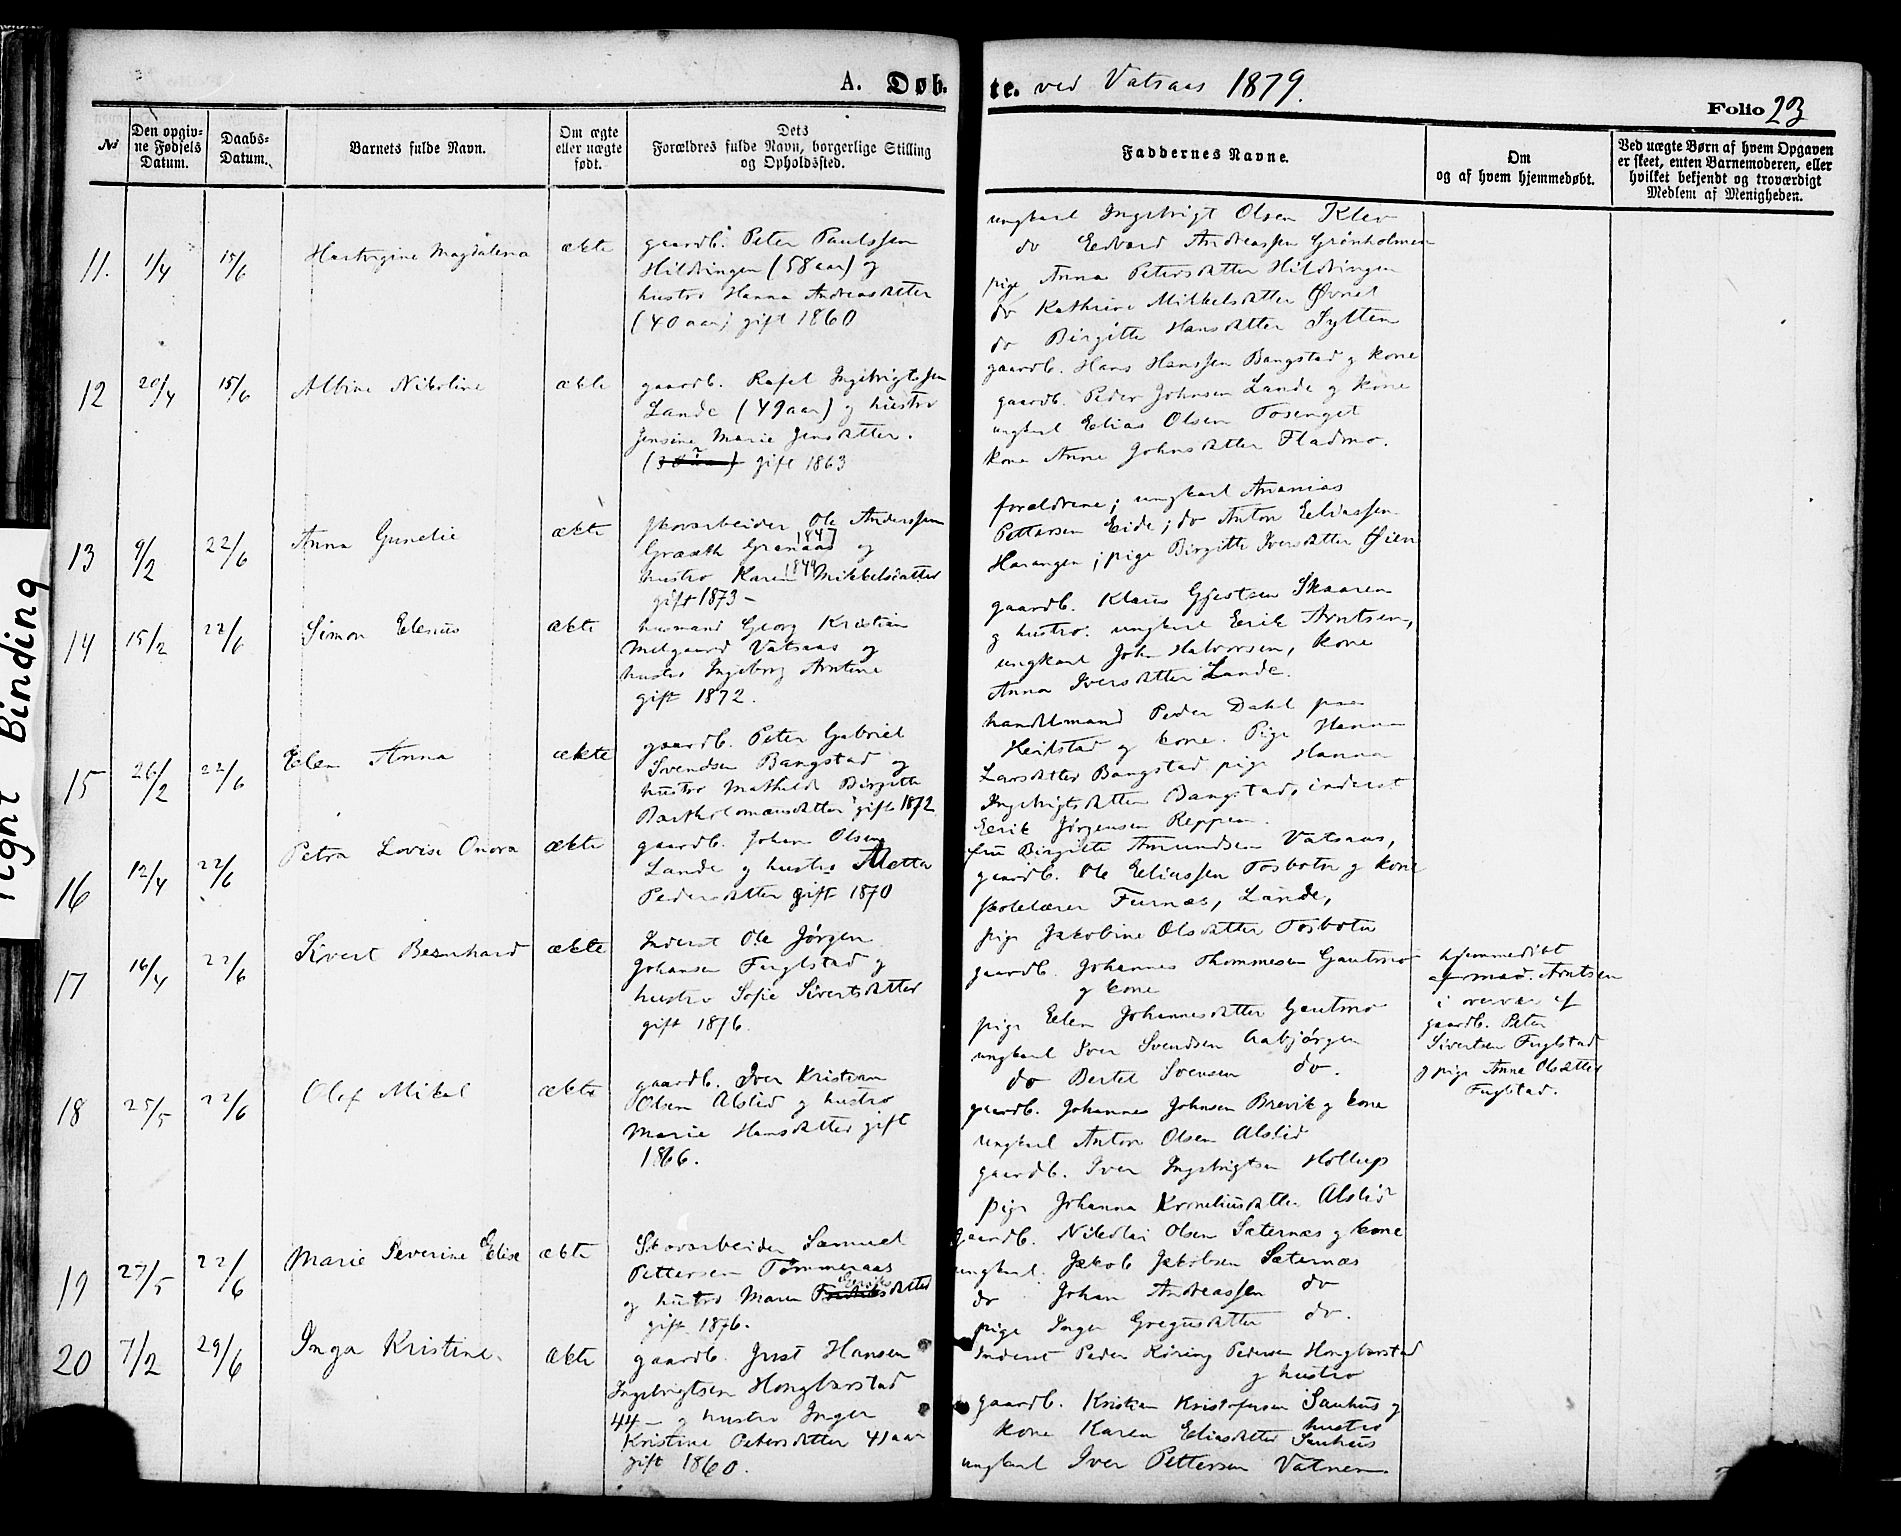 A. Døb- te. ved Vatsaas 1879.
Folio 23
Tight Binding
№
Den opgiv-
ne Fødsels
Datum.
Daabs-
Datum.
Barnets fulde Navn.
Om ægte
eller uægte
født.
Dets
Forældres fulde Navn, borgerlige Stilling
og Opholdssted.
Faddernes Navne.
Om
og af hvem hjemmedøbt.
Ved uægte Børn af hvem Opgaven
er skeet, enten Barnemoderen, eller
hvilket bekjendt og troværdigt
Medlem af Menigheden.
11. 1/4 15/6 Hartvigine Magdalena ækte
gaardb. Peter Paulssen
Hildringen (58 aar) og
hustro Hanna Andreasdatter
(40 aar) gift 1860
ungkarl Ingebrigt Olsen Klev
do Edvard Andreassen Grønholmen
pige Anna Petersdatter Hildringen
do Kathrine Mikkelsdatter Øvnet
do Birgitte Hansdatter Sylten
12 20/4 15/6 Albine Nikoline ækte
gaardb. Rafel Ingebrigtssen
Lande (49 aar) og hustro
Jensine Marie Jensdatter.
gift 1863
gaardb. Hans Hanssen Bangstad og kone
gaardb. Peder Johnsen Lande og kone
ungkarl Elias Olsen Tosenget
kone Anne Johnsdatter Fladmo.
13 9/2 22/6 Anna Gunelie ækte
skovarbeider Ole Anderssen
Græsth Grønaas 1847 og
hustro Karen 1849 Mikkelsdatter
gift 1873 –
forældrene; ungkarl Ananias
Pettersen Eide; do Anton Eliassen
Harangen; pige Birgitte Iversdatter Øien
14 15/2 22/6 Simon Elenius ækte
husmand Georg Kristian
Melgaard Vatsaas og
hustro Ingeborg Arntine
gift 1872.
gaardb. Klaus Gjertsen Skaaren
og hustro. ungkarl Erik Arntsen,
ungkarl John Halvorsen, kone
Anna Iversdatter Lande.
15 26/2 22/6 Elen Anna ækte
gaardb. Peter Gabriel
Svendsen Bangstad og
hustro Mathilde Birgitte
Bartholomæusdatter gift 1872
handelsmand Peder Dahl paa
Heilstad og kone. Pige Hanna
Larsdatter Bangstad pige Hanna
Ingebrigtsdatter Bangstad, inderst
Erik Jørgensen Reppen.
16 12/4 22/6 Petra Lovise Onora ækte
gaardb. Johan Olsen
Lande og hustro Metta
Pedersdatter gift 1870
fru Birgitte Amundsen Vatsaas,
gaardb. Ole Eliassen Tosbotn og kone
skolelærer Furnæs, Lande,
pige Jakobine Olsdatter Tosbotn
17 16/4 22/6 Sivert Bernhard ækte
Inderst Ole Jørgen
Johansen Fuglstad og
hustro Sofie Sivertsdatter
gift 1876.
gaardb. Johannes Thommesen Gautmo
og kone
pige Elen Johannesdatter Gautmo
ungkarl Iver Svendsen Aabjørgen
do Bertel Svensen do.
hjemmedøbt
af mad. Arntsen
i overvær af
gaardb. Peter
Sivertsen Fuglstad
og pige Anne Olsdatter
Fuglstad.
18 25/5 22/6 Olef Mikal ækte
gaardb. Iver Kristian
Olsen Alslid og hustro
Marie Hansdatter gift
1866.
gaardb. Johannes Johnsen Brevik og kone
ungkarl Anton Olsen Alslid
gaardb. Iver Ingebrigtsen Hollup
pige Johanna Korneliusdatter Alslid
19 27/5 22/6 Marie Severine Elise ækte
Skovarbeider Samuel
Pettersen Tømmeraas
og hustro Maren datter
gift 1876.
gaardb. Nikolai Olsen Sæternæs og kone
ungkarl. Jakob Jakobsen Sæternæs
do Johan Andreassen do
pige Inger Gregusdatter do.
20 7/2 29/6 Inga Kristine. ækte
gaardb. Just Hansen
Ingebrigtsen Hongbarstad
44 – og hustro Inger
Kristine Petersdatter 41 aar
gift 1860.
Inderst Peder Røring Pedersen Hongbarstad
og hustro
gaardb. Kristian Kristofersen Sauhus og
kone Karen Eliasdatter hustro Sauhus
ungkarl Iver Pettersen Vatnem